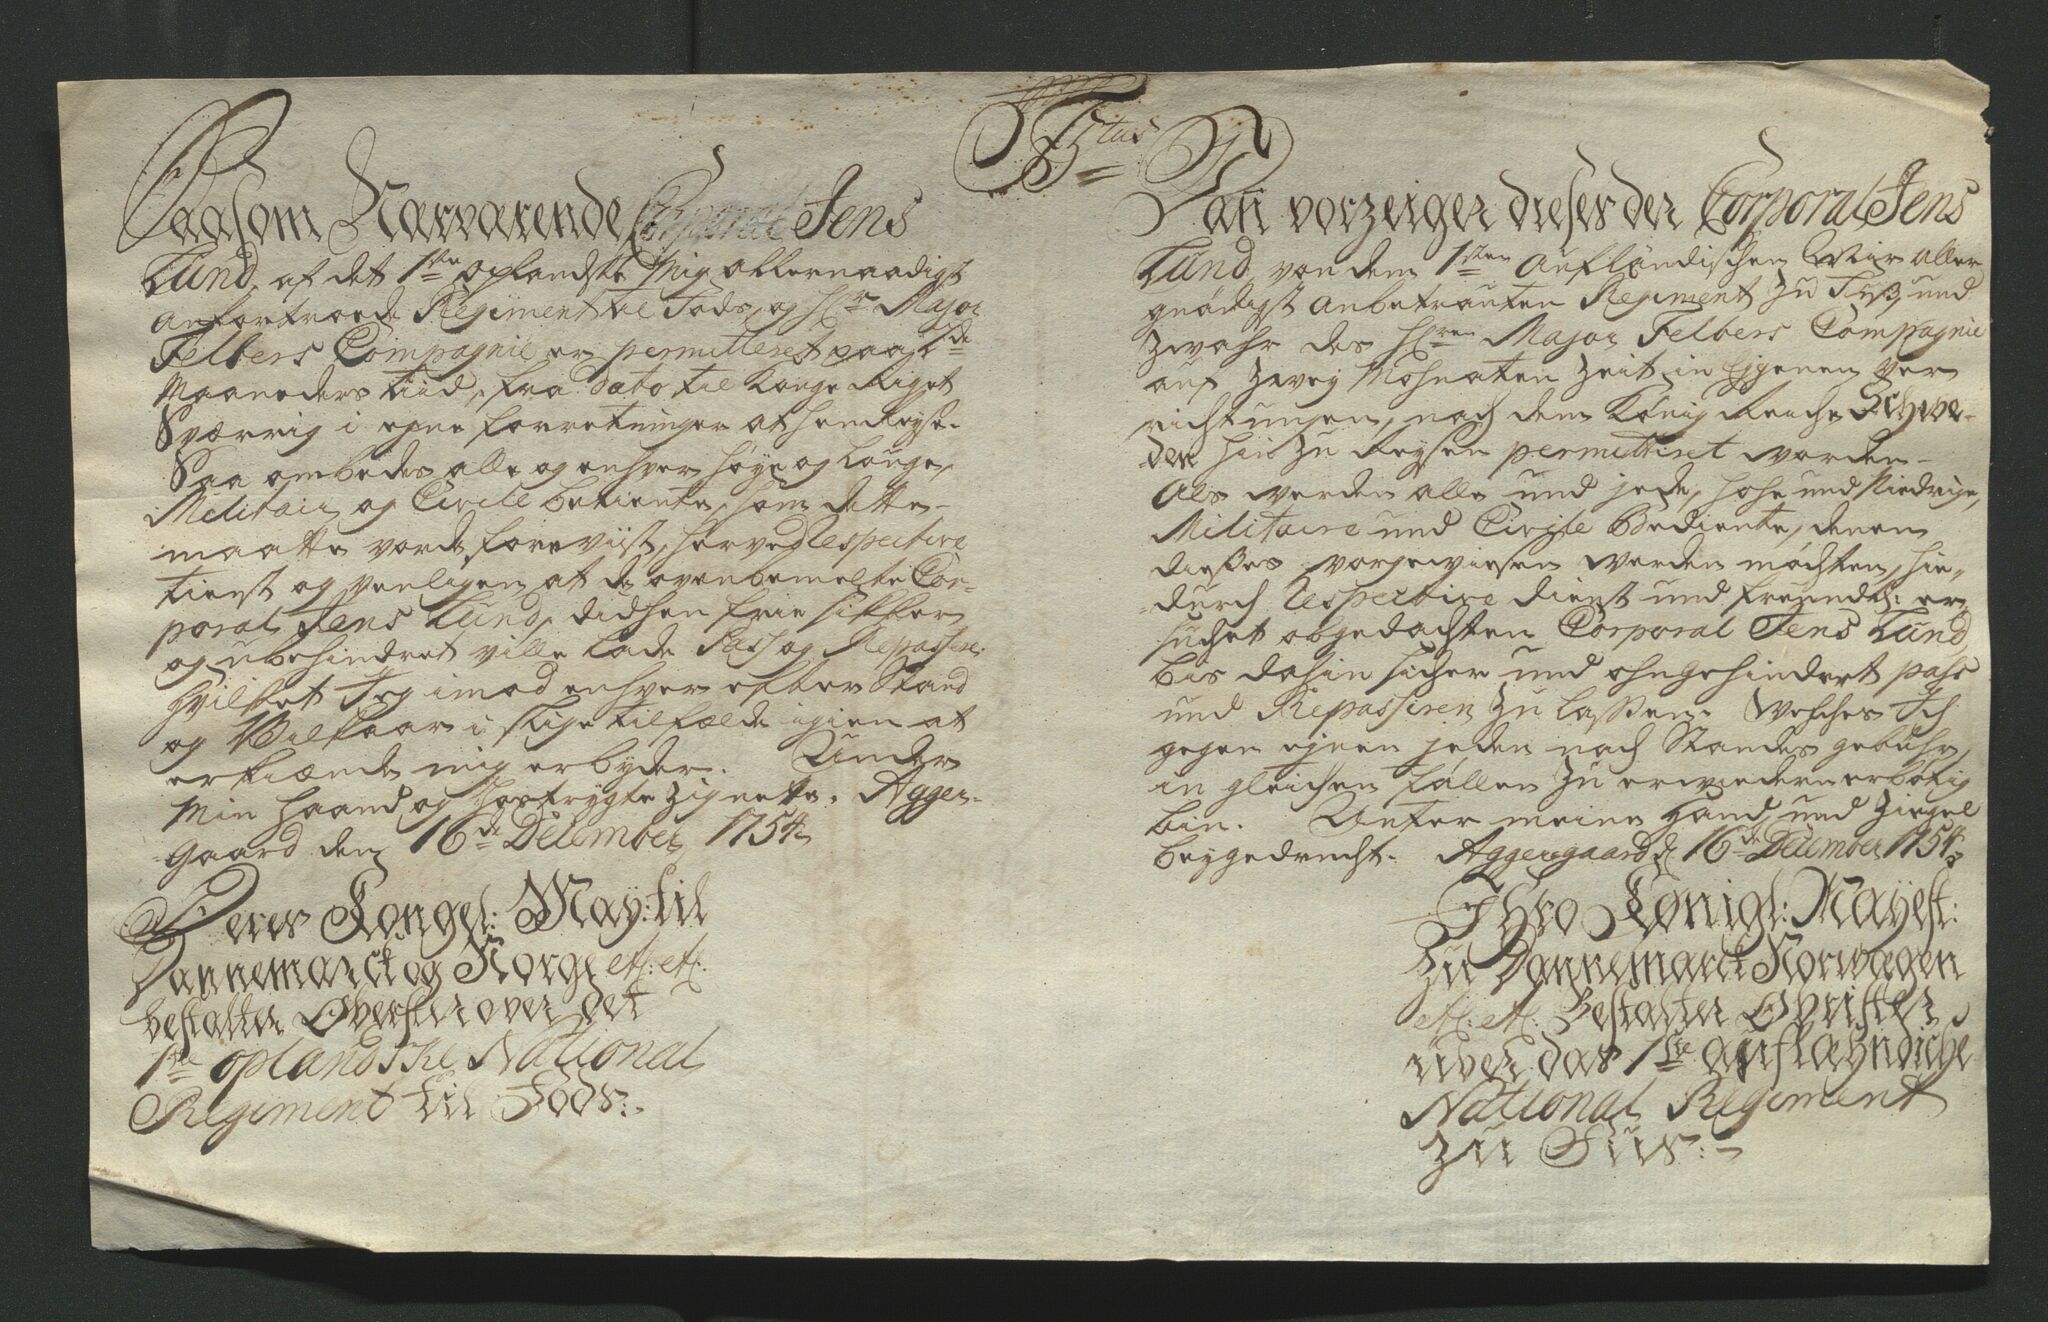 Titus
Saasom Nærværende Corporal Jens
Lund, af det 1ste oplandske Mig allernaadigst
anfortroede Regiment til Fods, og Hr Major
Felbers Compagnie er permitteret paa 2de
Maaneders tiid, fra dato til Konge Riget
Sværrig i egne forretninger at henreyse.
Saa ombedes alle og enhver høye og Lauge,
Militair og Civile betiente, som dette
maatte vorde foreviist, herved Respective
tienst og venligen at de ovenbemelte Cor-
poral Jens Lund, didhen frie sikker
og ubehindret ville lade Pass og Repassere.
hvilket Jeg imod enhver efter Stand
og Vilkaar i slige tilfælde igien at
erkiænde mig erbyder. Under
Min haand og hostrygte Zignette. Agger-
gaard den 16de December 1754
Deres Kongel: May: til
Dannemarck og Norge etc: etc:
bestalter Øverster over det
1ste oplandske National
Regiment til Fods:
Dan vorzeiger dieses der Corporal Jens
Lund, von dem 1sten aufländischen Mir aller
gnädigst anbetrauten Regiment zu Fuß, und
zwahr des Hren Major Felbers Compagnie
auf zwey Mohnaten Zeit in Eygenen Ver
richtungen, nach dem König Reiche Schwe-
den hin zu Reysen permittiret worden
Als werden alle und jede, hohe und Niedrige,
Militaire und Civile Bediente, denen
dieses vorgewiesen werden möchten, hie-
durch Respective dienst und freundl: er
suchet obgedachten Corporal Jens Lund
bis dahin sicher und ohngehindert pass
und Repassiren zu lassen. Welches Ich
gegen eynen jeden nach Standes gebühr,
in gleichen fällen zu erwiedern erbötig
bin. Unter meine Hand, und Ziegel
beygedrucht. Aggersgaard d 16de December 1754
Ihro Königl: Mayest:
zu Dannemarck Norwegen
etc: etc: Bestalter Obrister
über das 1ste auflændiche
National Regiment
zu Fus: